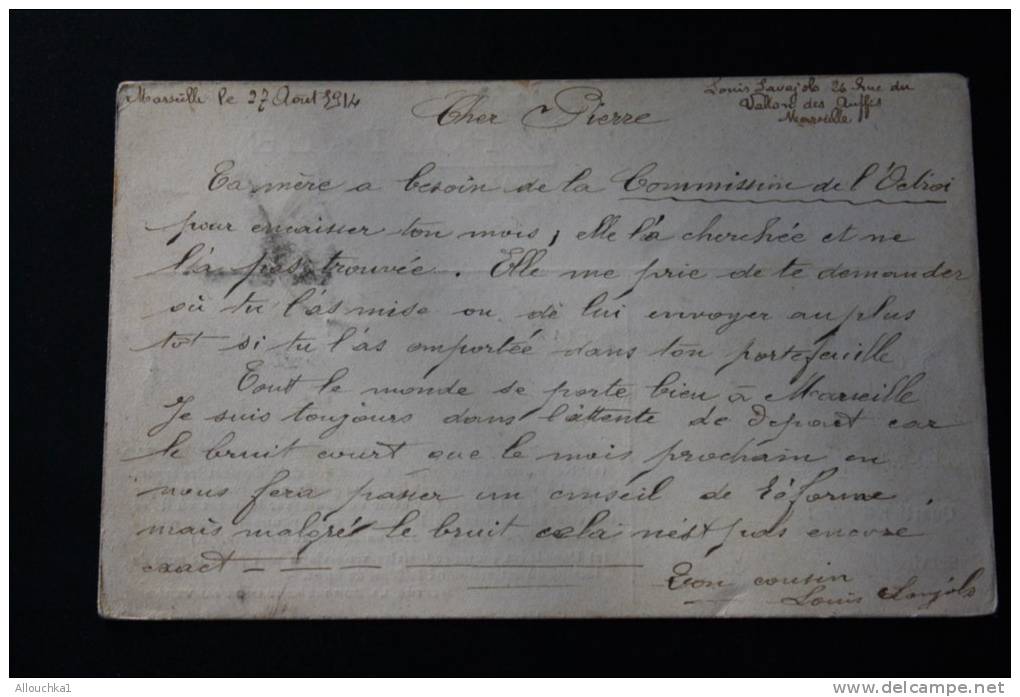 Marseille le 27 Aout 1914
Louis Lavajols 26 Rue du
Vallon des Auffes
Marseille
Cher Pierre
Ta mère a besoin de la Commission de l'Octroi
pour encaisser ton mois, elle l'a cherchée et ne
l'a pas trouvée. Elle me prie de te demander
où tu l'as mise ou de lui envoyer au plus
tot si tu l'as emportée dans ton portefeuille
Tout le monde se porte bien à Marseille
Je suis toujours dans l'attente de depart car
le bruit court que le mois prochain on
nous fera passer un conseil de réforme,
mais malgré le bruit cela n'est pas encore
exact
Ton cousin
Louis
Allouchka1
www.delcampe.net